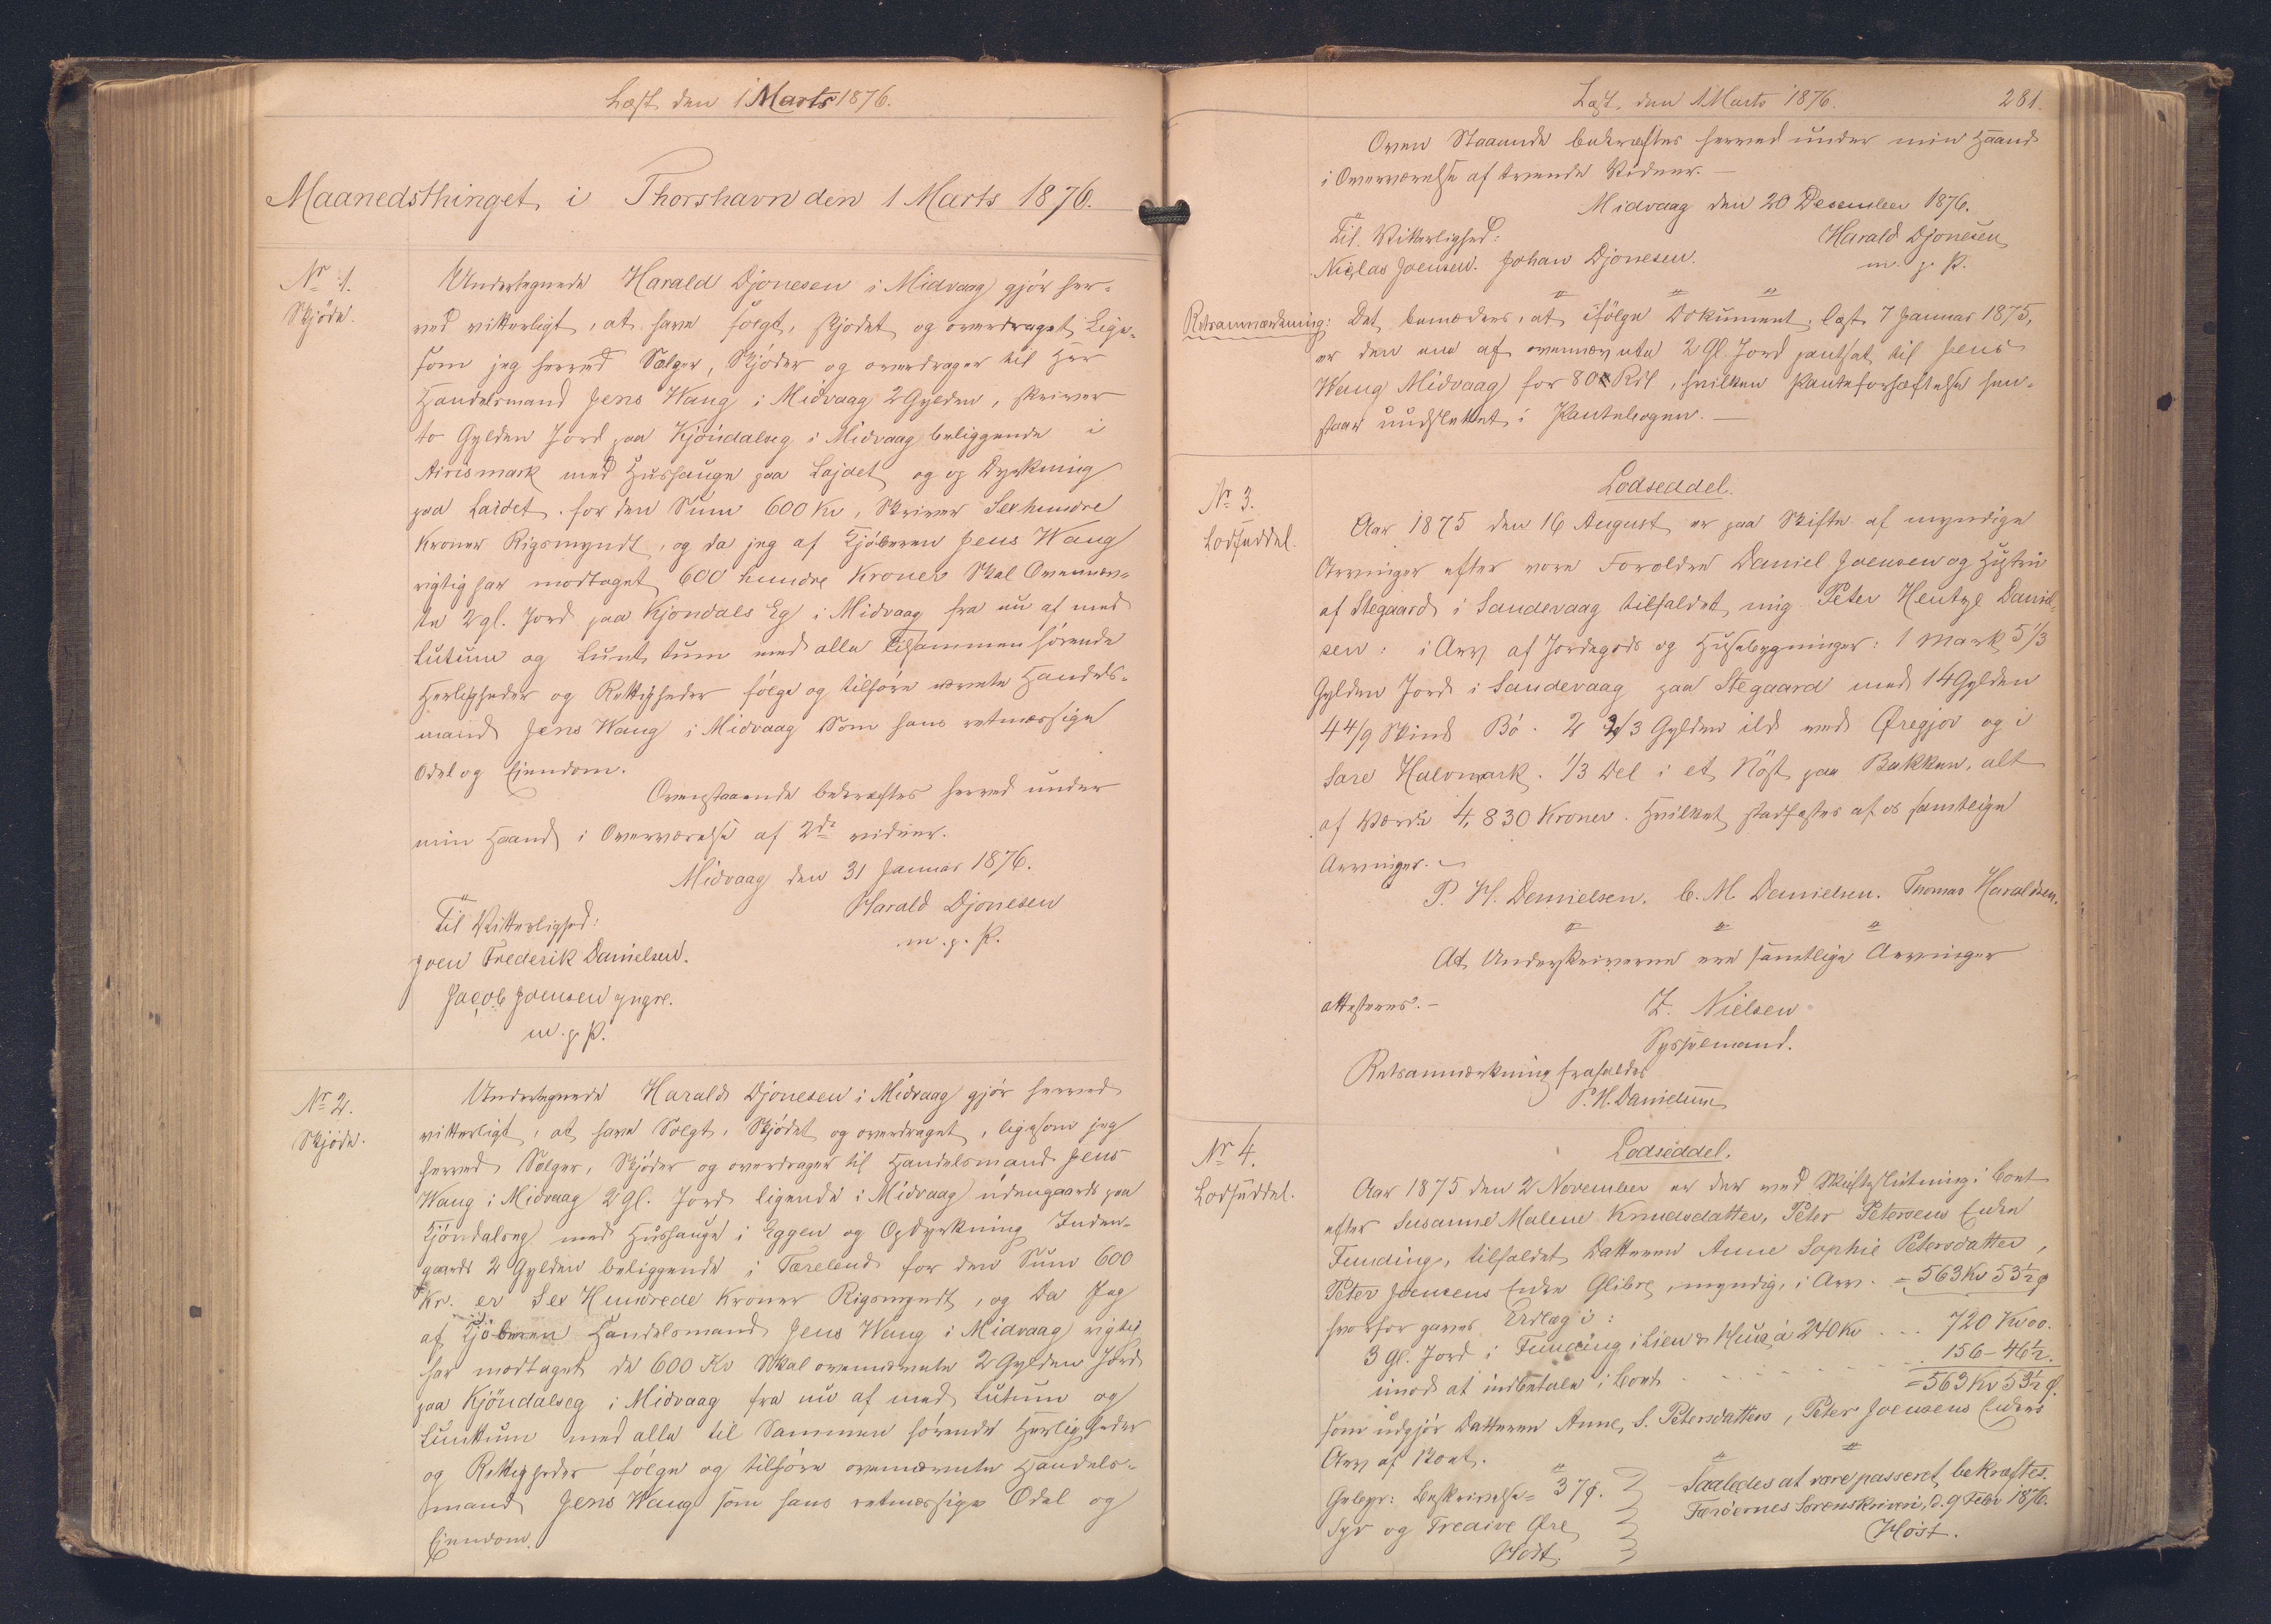 Læst den 1 Marts 1876.
Maanedsthinget i Thorshavn den 1 Marts 1876.
No 1.
Skjöde.
Undertegnede Harald Djonesen i Midvaag gjör her-
ved vitterligt, at have solgt, skjödet og overdraget, Lige-
som jeg herved Sælger, Skjöder og overdrager til Herr
Handelsmand Jens Waag i Midvaag 2 Gylden, skriver
to Gylden Jord paa Kjöndalseg i Midvaag beliggende i
Airismark med Hushauge paa Lajdet og op Dyrkning
paa Laidet. for den Sum 600 Kr, Skriver Sexhundre
Kroner Rigsmyndt, og da jeg af Kjöberen Jens Waag
rigtig har modtaget 600 hundre Kroner Skal Ovennævn-
te 2 gl. Jord paa Kjondals Eg i Midvaag fra nu af med
Lutum og Lunt tum med alle Tilsammen hörende
Herligheder og Rettigheder fölge og tilhöre nævnte Handels-
mand Jens Waag i Midvaag Som hans retmæssige
Odel og Eiendom.
Ovenstaaende bekræftes herved under
min Haand i Overværelse af 2de vidner.
Midvaag den 31 Januar 1876.
Til Vitterlighed:
Harald Djonesen
Joen Frederik Danielsen.
m. p. P.
Jacob Joensen yngre.
m. p. P.
No 2.
Skjöde.
Undertegnede Harald Djonesen i Midvaag gjör herved
vitterligt, at have Solgt, Skjödet og overdraget, ligesom jeg
herved Sölger, Skjöder og overdrager til Handelsmand Jens
Waag i Midvaag 2 Gl. Jord ligende i Midvaag udengaards paa
Kjöndalseg med Hushauge i Eggen og Opdyrkning Inden-
gaards 2 Gylden beliggende i Tærelend for den Sum 600
Kr. er Sex Hundrede Kroner Rigsmyndt, og Da Jeg
af Kjöberen Handelsmand Jens Waag i Midvaag rigtig
har modtaget de 600 Kr Skal ovennævnte 2 Gylden Jord
paa Kjöndalseg i Midvaag fra nu af med Lutum og
Lunttum med alle til Sammen hörende Herligheder
og Rettigheder fölge og tilhöre ovennævnte Handels-
mand Jens Waag som hans retmæssige Odel og
Eiendom.
Læst, den 1 Marts 1876.
281.
Oven Staaende bekræftes herved under min Haand
i Overværelse af tvende Vidner. —
Midvaag den 20 December 1876.
Til Vitterlighed:
Harald Djonesen
Niclas Joensen. Johan Djonesen.
m. p. P.
Retsanmærkning: Det bemærkes, at ifölge Dokument, læst 7 Januar 1875,
er den ene af ovennævnte 2 Gl. Jord pantsat til Jens
Waag Midvaag for 80 Rdl., hvilken Panteforhæftelse hen-
staar uudslettet i Pantebogen. —
No 3.
Lodseddel.
Lodseddel.
Aar 1875 den 16 August er paa Skifte af myndige
Arvinger efter vore Foroldre Daniel Joensen og Hustru
af Stegaard i Sandevaag tilfaldet mig Peter Hentze Daniel-
sen: i Arv af Jordegods og Husebygninger: 1 Mark 5 1/3
Gylden Jord i Sandevaag paa Stegaard med 14 Gylden
4 4/9 Skind Bö. 2 2/3 Gylden ild med Øregjov og i
Sare Halvmark. 1/3 Del i et Nöst paa Bakken, alt
af Værdi 4,830 Kroner. Hvilket stadfæstes af os samtlige
Arvinger. —
P. H. Danielsen. C. M. Danielsen. Thomas Haraldsen.
At Underskriverne ere samtlige Arvinger
attesteres. —
Z. Nielsen
Sysselmand.
Retsanmærkning frafaldes
P. H. Danielsen
No 4.
Lodseddel.
Lodseddel.
Aar 1875 den 2 November er der ved Skifteslutning i Boet
efter Susanne Malene Knudsdatter, Peter Petersens Enke
Funding, tilfaldet Datteren Anne Sophie Petersdatter,
Peter Joensens Enke Glibre, myndig, i Arv. = 563 Kr 53½ ø
hvorfor gaves Udlæg i:
3 gl. Jord i Funding i Lien & Hüug á 240 Kr . . . 720 Kr 00.
imod at indbetale i Boet . . . . . . 156 - 46½.
= 563 Kr 53½ ø.
som udgjör Datteren Anne, S. Petersdatters, Peter Joensens Enkes
Arv af Boet.
Gebyr: Beskrivelse = 37 ø.
Syv og Tredive Øre
Höst.
Saaledes at være passeret, bekræftes.
Færöernes Sorenskriveri, d. 9 Febr 1876.
Höst.